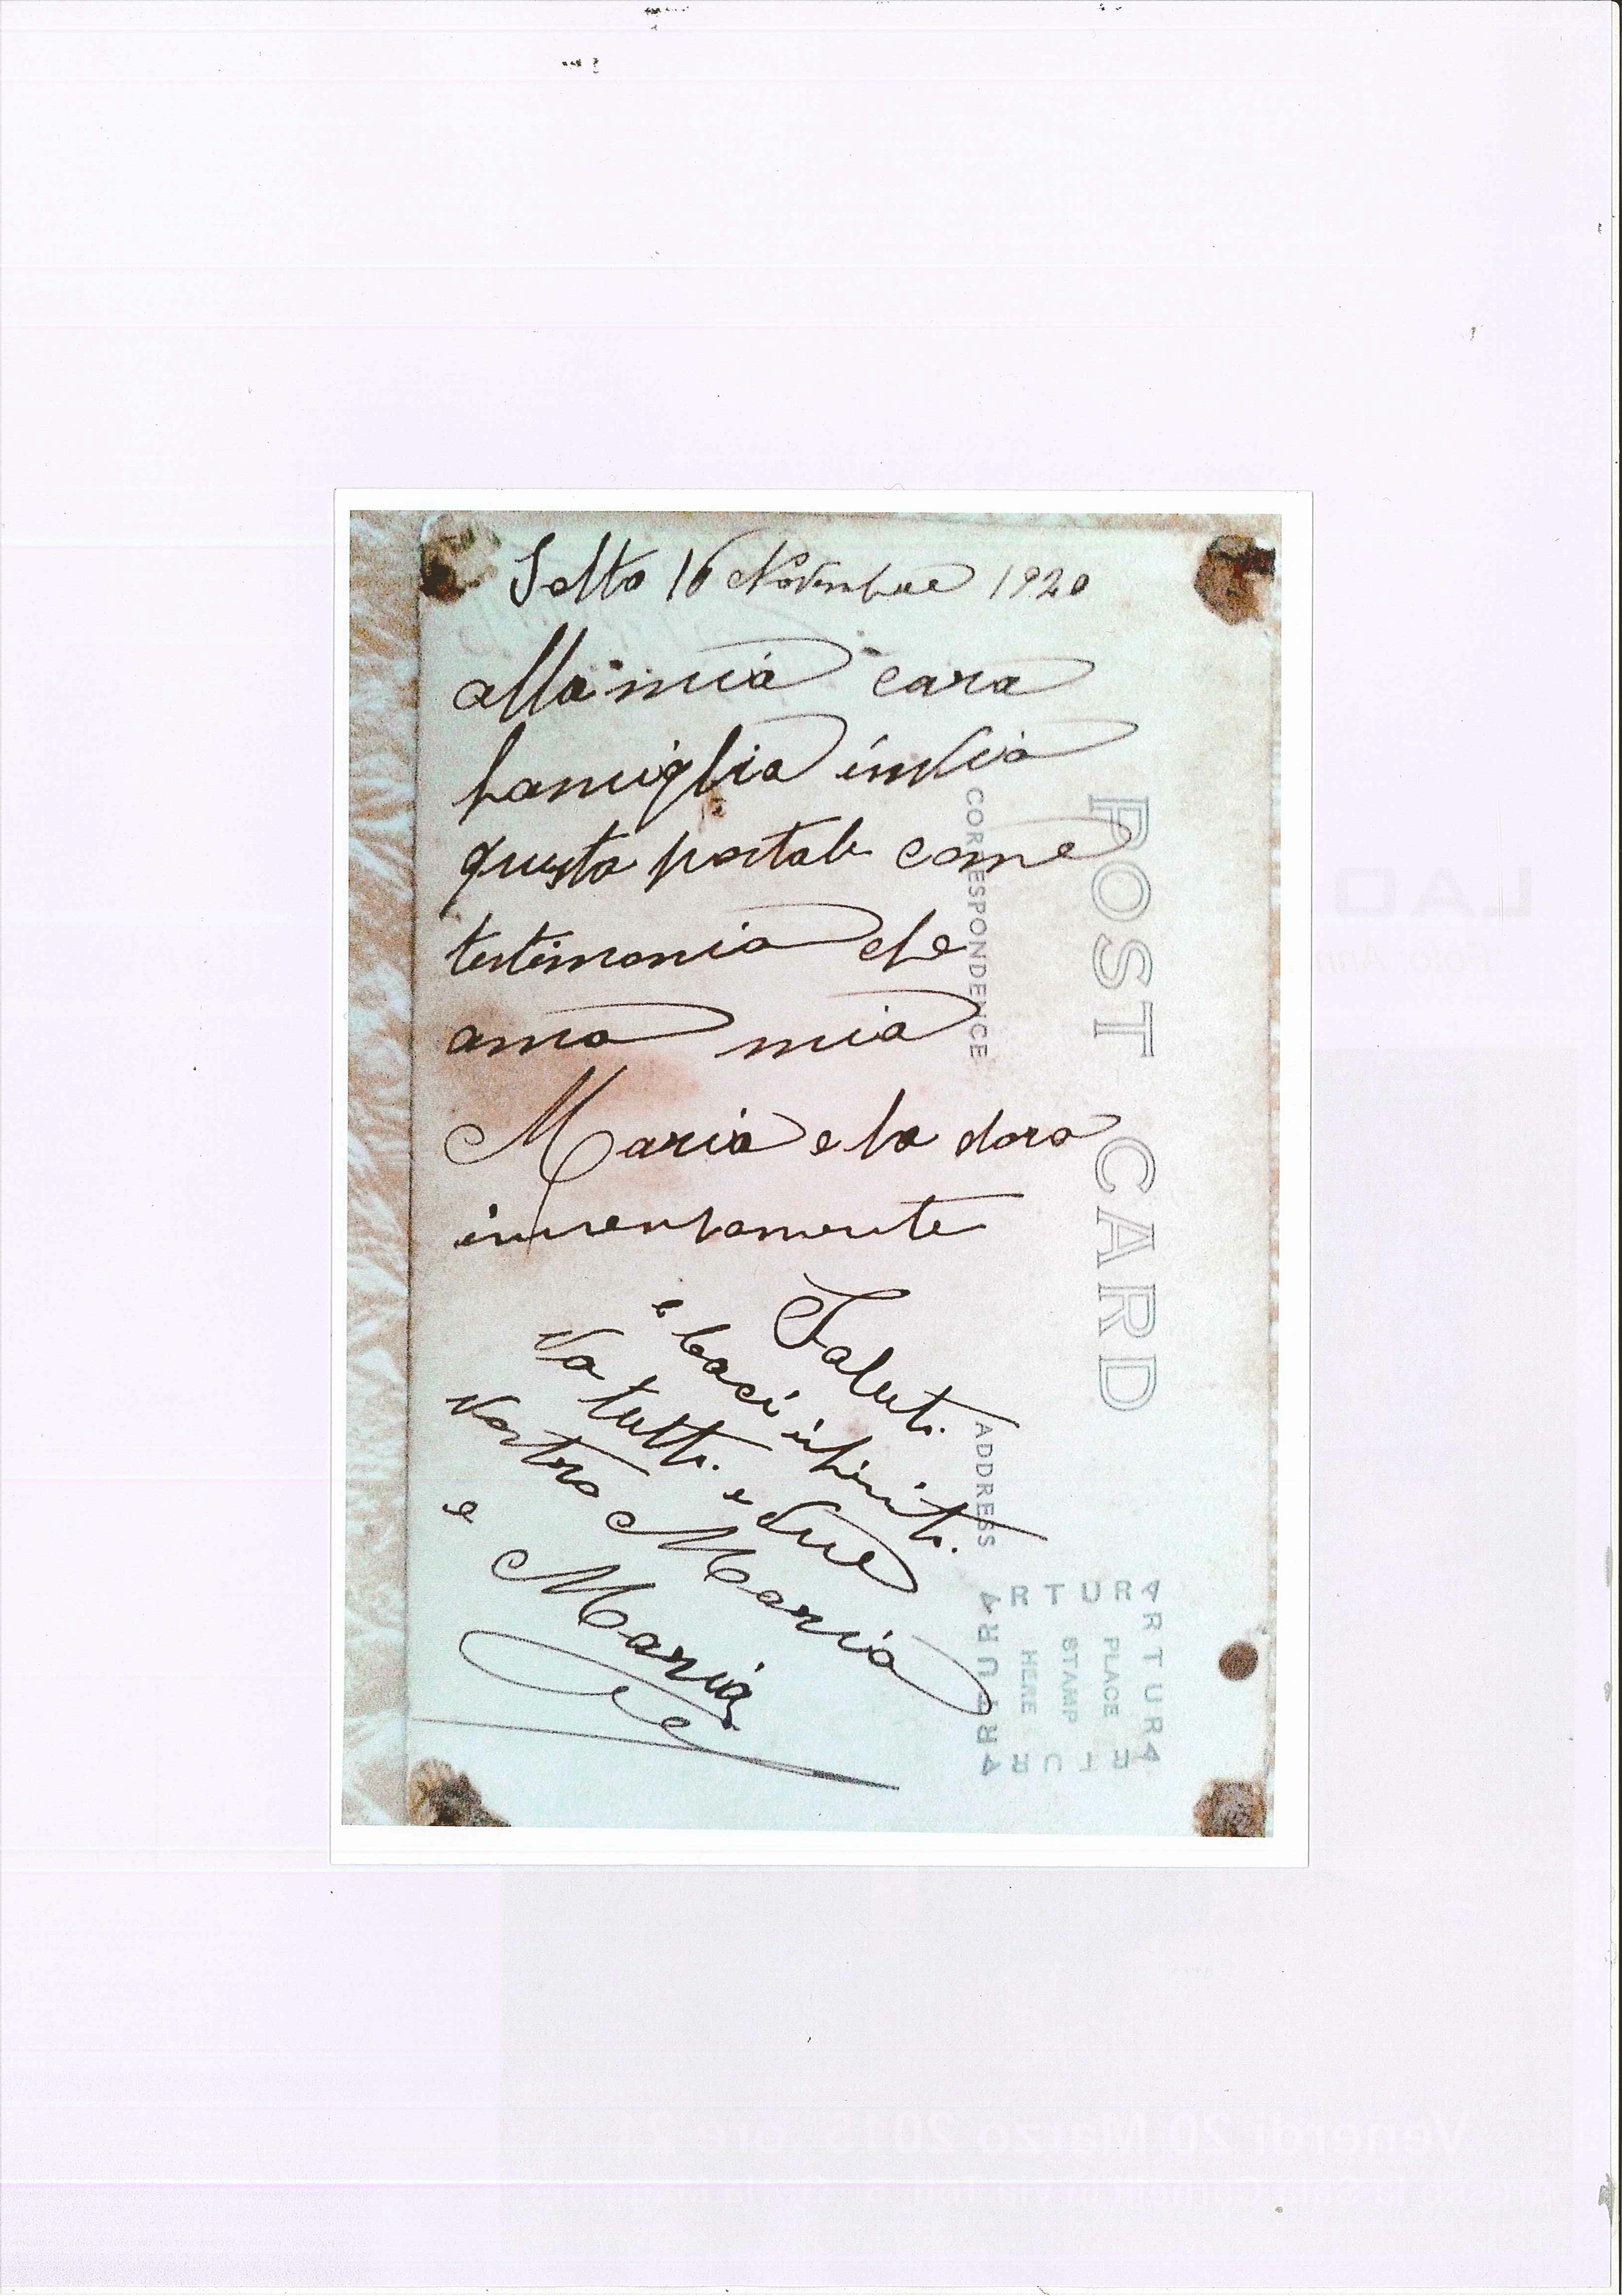 Salto 16 Novembre 1920
alla mia cara
famiglia invia
questa postale come
testimonia che
ama mia
Maria e la dora
imensamente
Saluti
e baci infiniti
Va tutti e due
Vostro Maria
e Maria
POST CARD
CORRESPONDENCE
ADDRESS
ARTURA
PLACE
STAMP
HERE
ARTURA
ARTURA
Venerdì 20 Marzo 2015